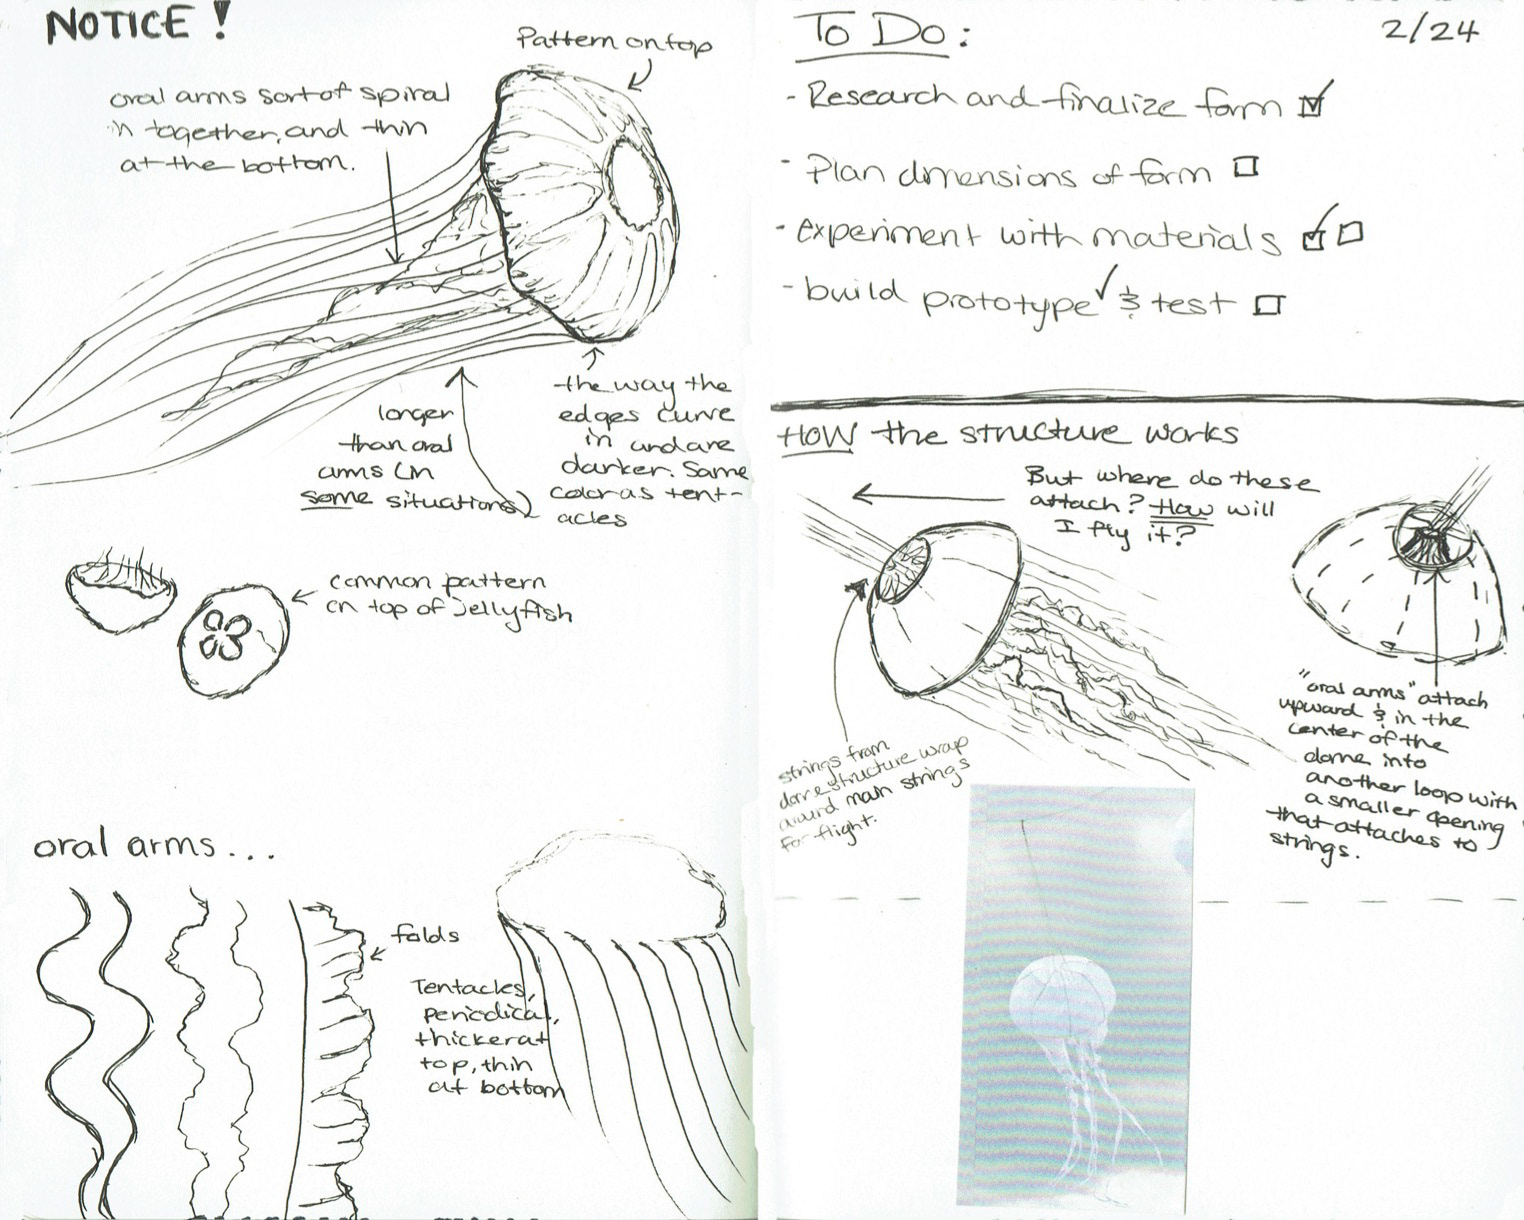 NOTICE!
Pattern on top
oral arms sort of spiral
in together, and thin
at the bottom.
longer
than oral
arms (in
some situations)
the way the
edges curve
in and are
darker. Same
color as tent-
acles
common pattern
on top of jellyfish
oral arms...
folds
Tentacles,
periodical,
thicker at
top, thin
at bottom
To Do:
2/24
- Research and finalize form ☑
- Plan dimensions of form ☐
- experiment with materials ☑ ☐
- build prototype ✓ & test ☐
HOW the structure works
But where do these
attach? How will
I fly it?
strings from
dome structure wrap
around main strings
for flight.
"oral arms" attach
upward & in the
center of the
dome into
another loop with
a smaller opening
that attaches to
strings.